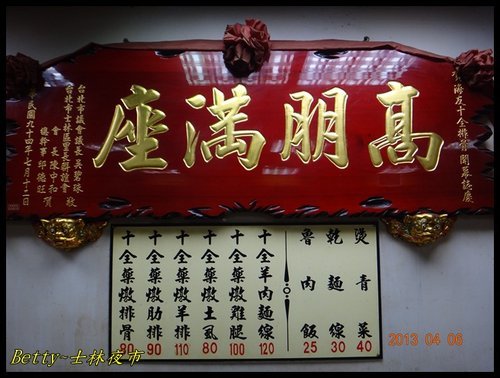 高朋滿座
海友十全排骨開幕誌慶
台北市議會議長吳碧珠
台北市士林區里長聯誼會
會長陳中和
總幹事邱德旺
敬賀
中華民國九十四年七月十二日
燙青菜 40
乾麵線 30
魯肉飯 25
十全羊肉麵線 120
十全藥燉雞腿 100
十全藥燉土虱 80
十全藥燉羊排 110
十全藥燉肋排 90
十全藥燉排骨
2013 04 06
Betty-士林夜市